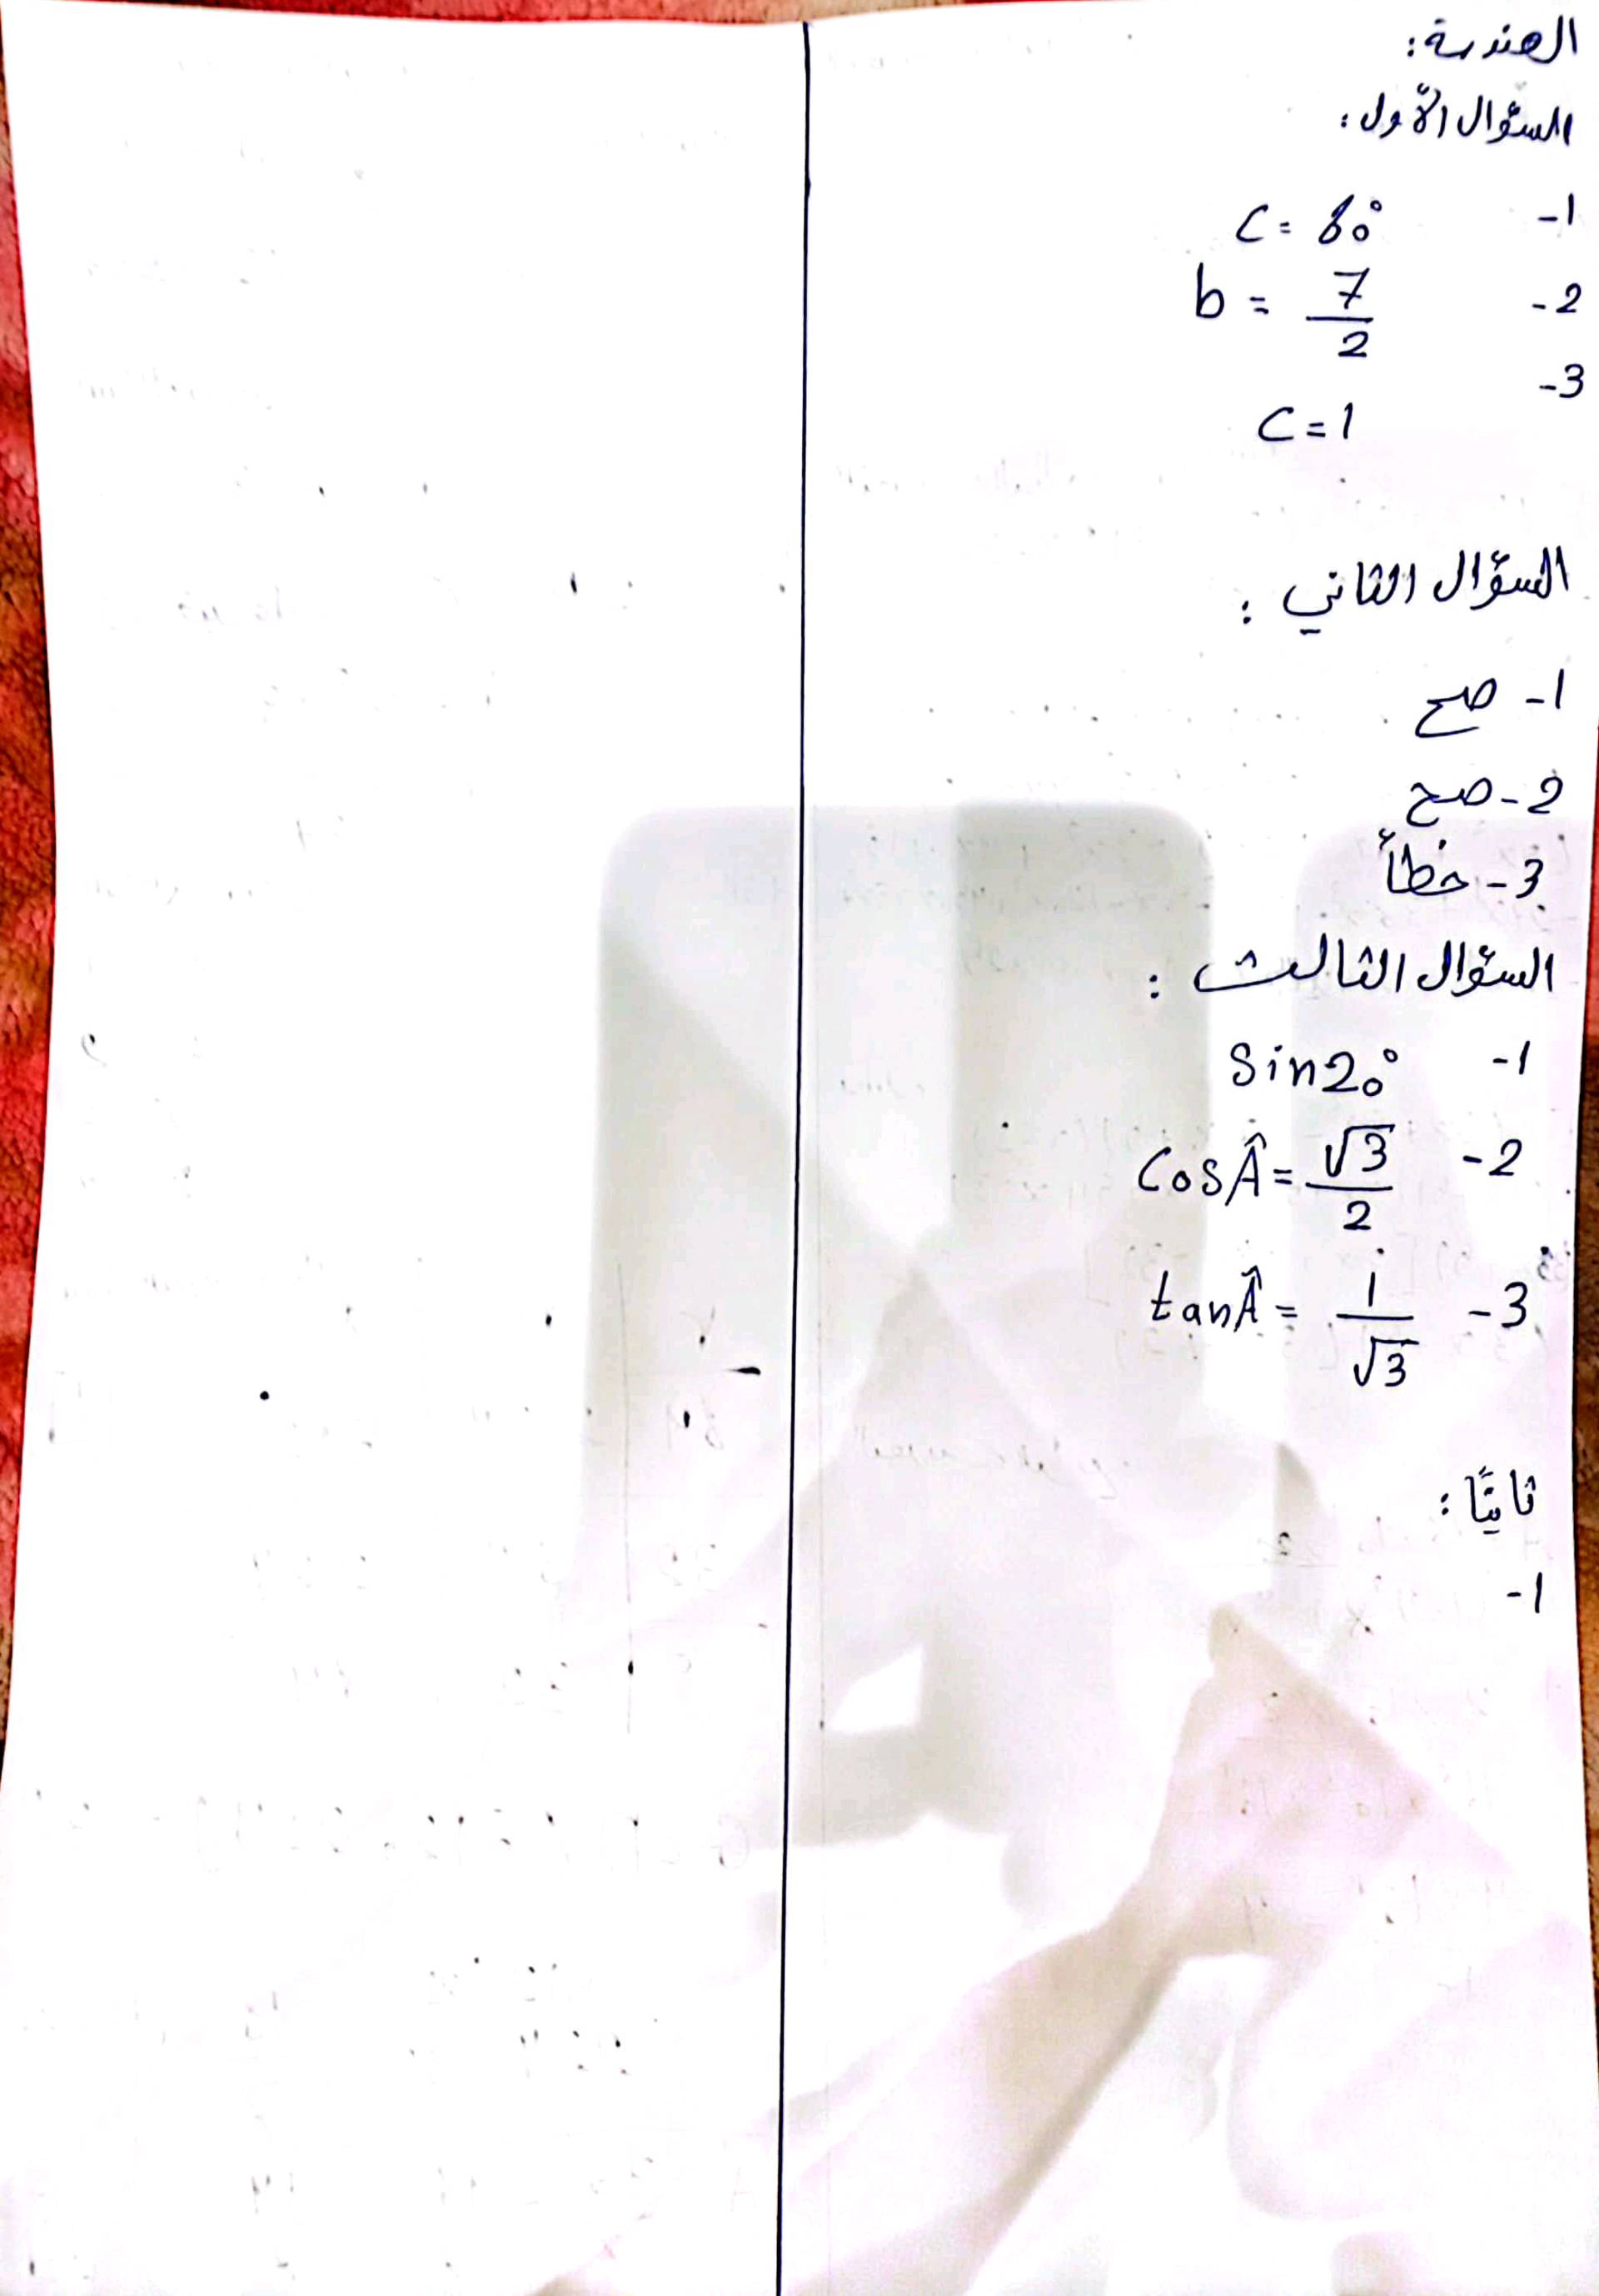 الهندسة:
السؤال الأول:
1- C = 60°
2- b = 7/2
3- C = 1
السؤال الثاني:
1- صح
2- صح
3- خطأ
السؤال الثالث:
1- Sin20°
2- Cos Â = √3/2
3- tan Â = 1/√3
ثانيًا:
1-